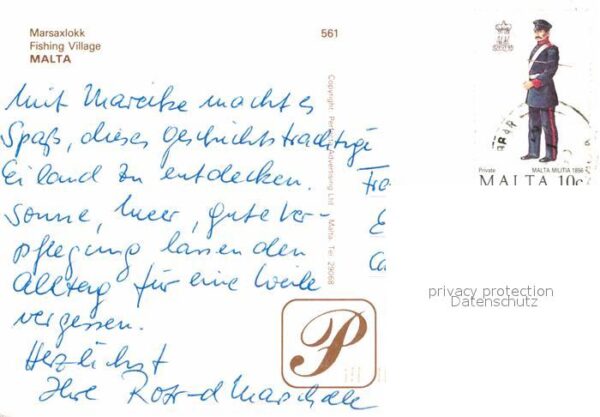 Marsaxlokk
Fishing Village
MALTA
561
Mit Mareike macht es
Spaß, dieses geschichtsträchtige
Eiland zu entdecken.
Sonne, Meer, gute Ver-
pflegung lassen den
Alltag für eine Weile
vergessen.
Herzlichst
Ihre
Copyright Advertising Ltd Malta Tel 29068
P
Private MALTA MILITIA 1856
MALTA 10c
privacy protection
Datenschutz